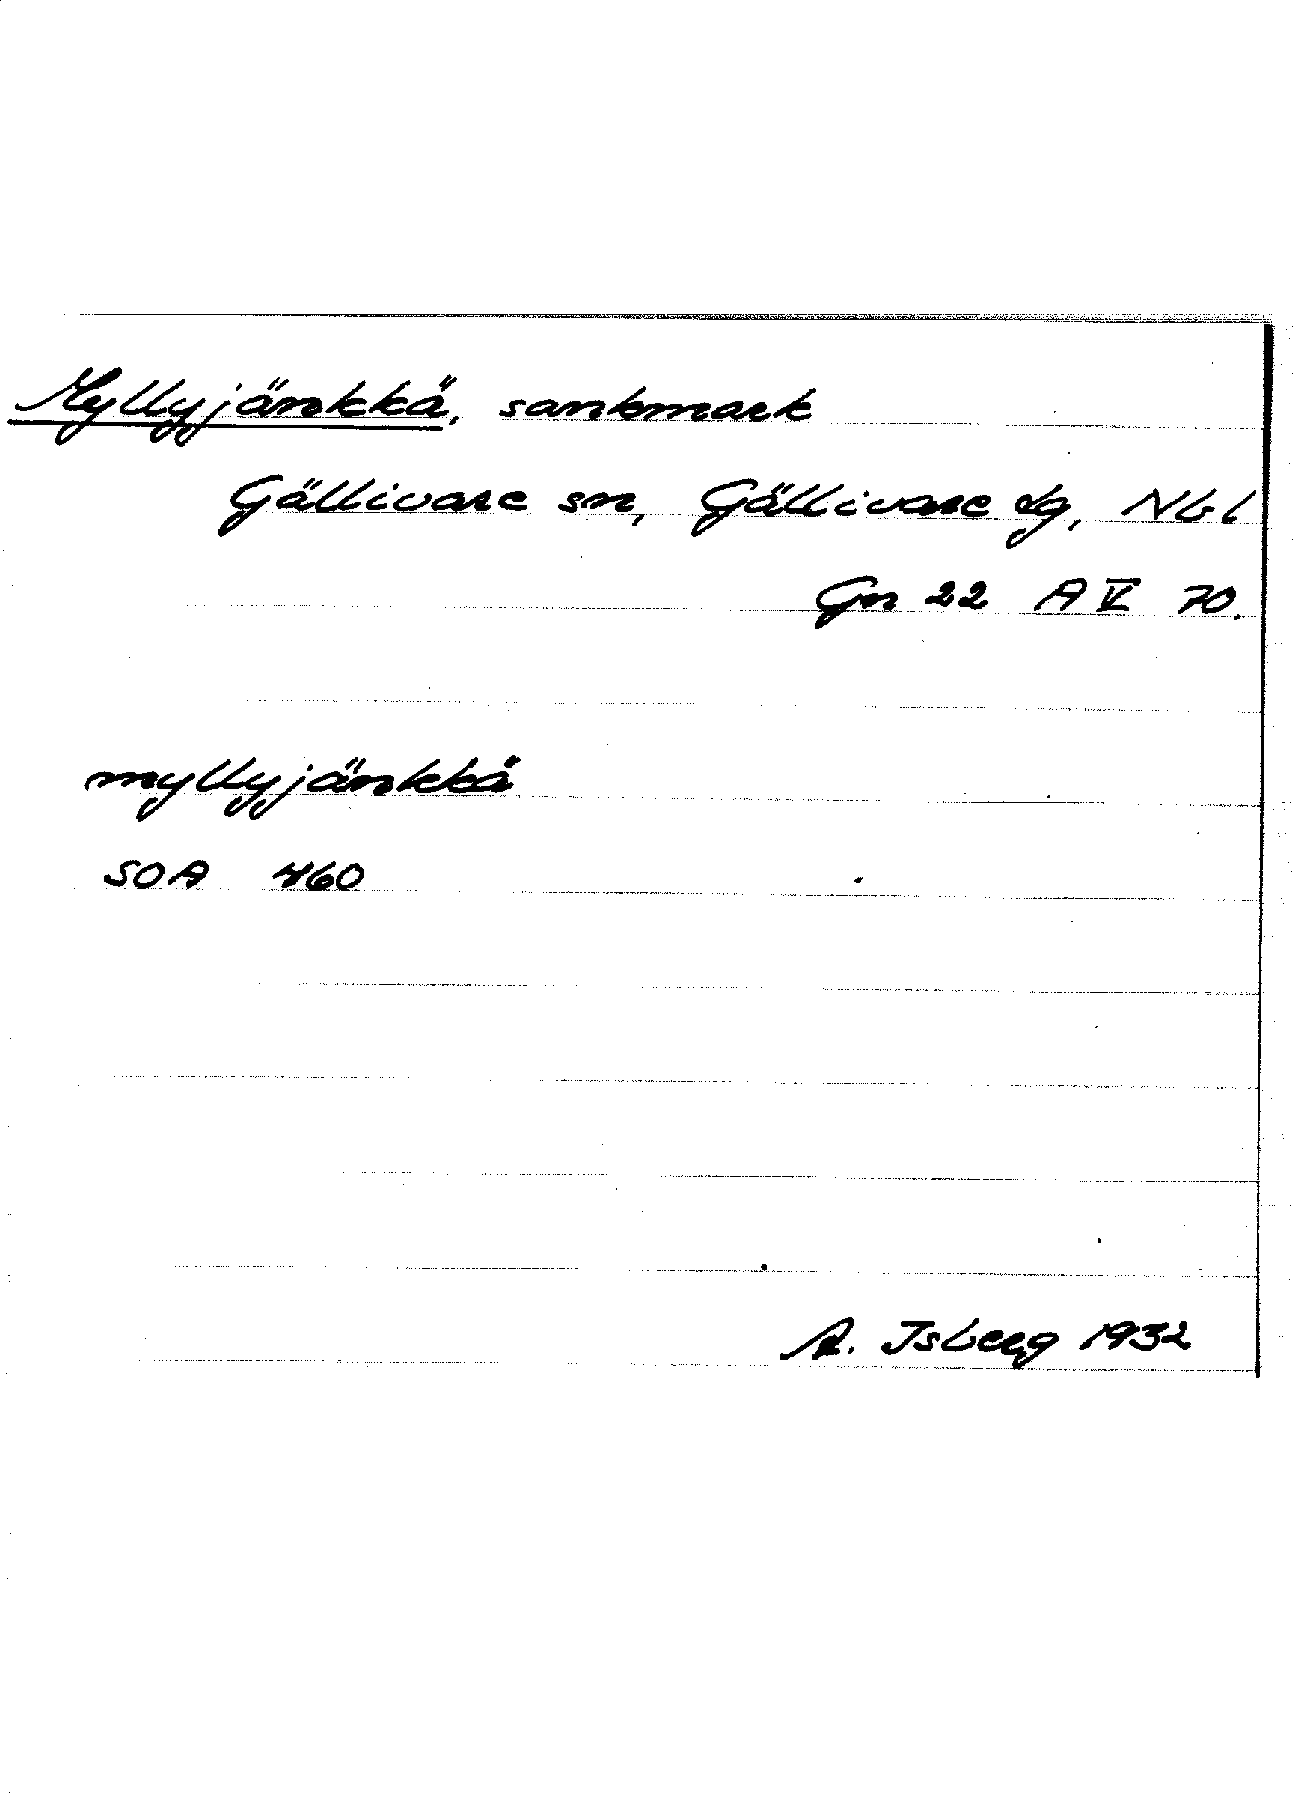 Myllyjänkkä, sankmark
Gällivare sn, Gällivare lg, Nbl
Gn 22 A V 70.
myllyjänkkä
SOA 460
A. Isberg 1932